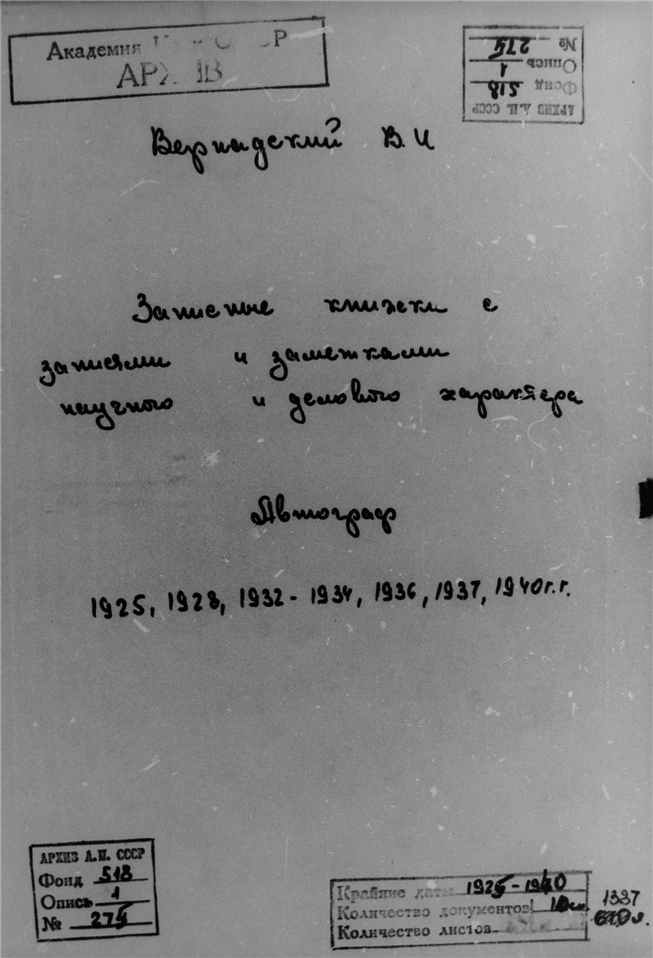 Академия
АРХИВ
АРХИВ А.Н. СССР
Фонд 518
Опись 1
№ 275
Вернадский В.И
Записные книжки с
записями и заметками
научного и делового характера
Автограф
1925, 1928, 1932-1934, 1936, 1937, 1940г.г.
АРХИВ А.Н. СССР
Фонд 518
Опись 1
№ 275
Крайние даты 1925-1940
Количество документов
1337
Количество листов